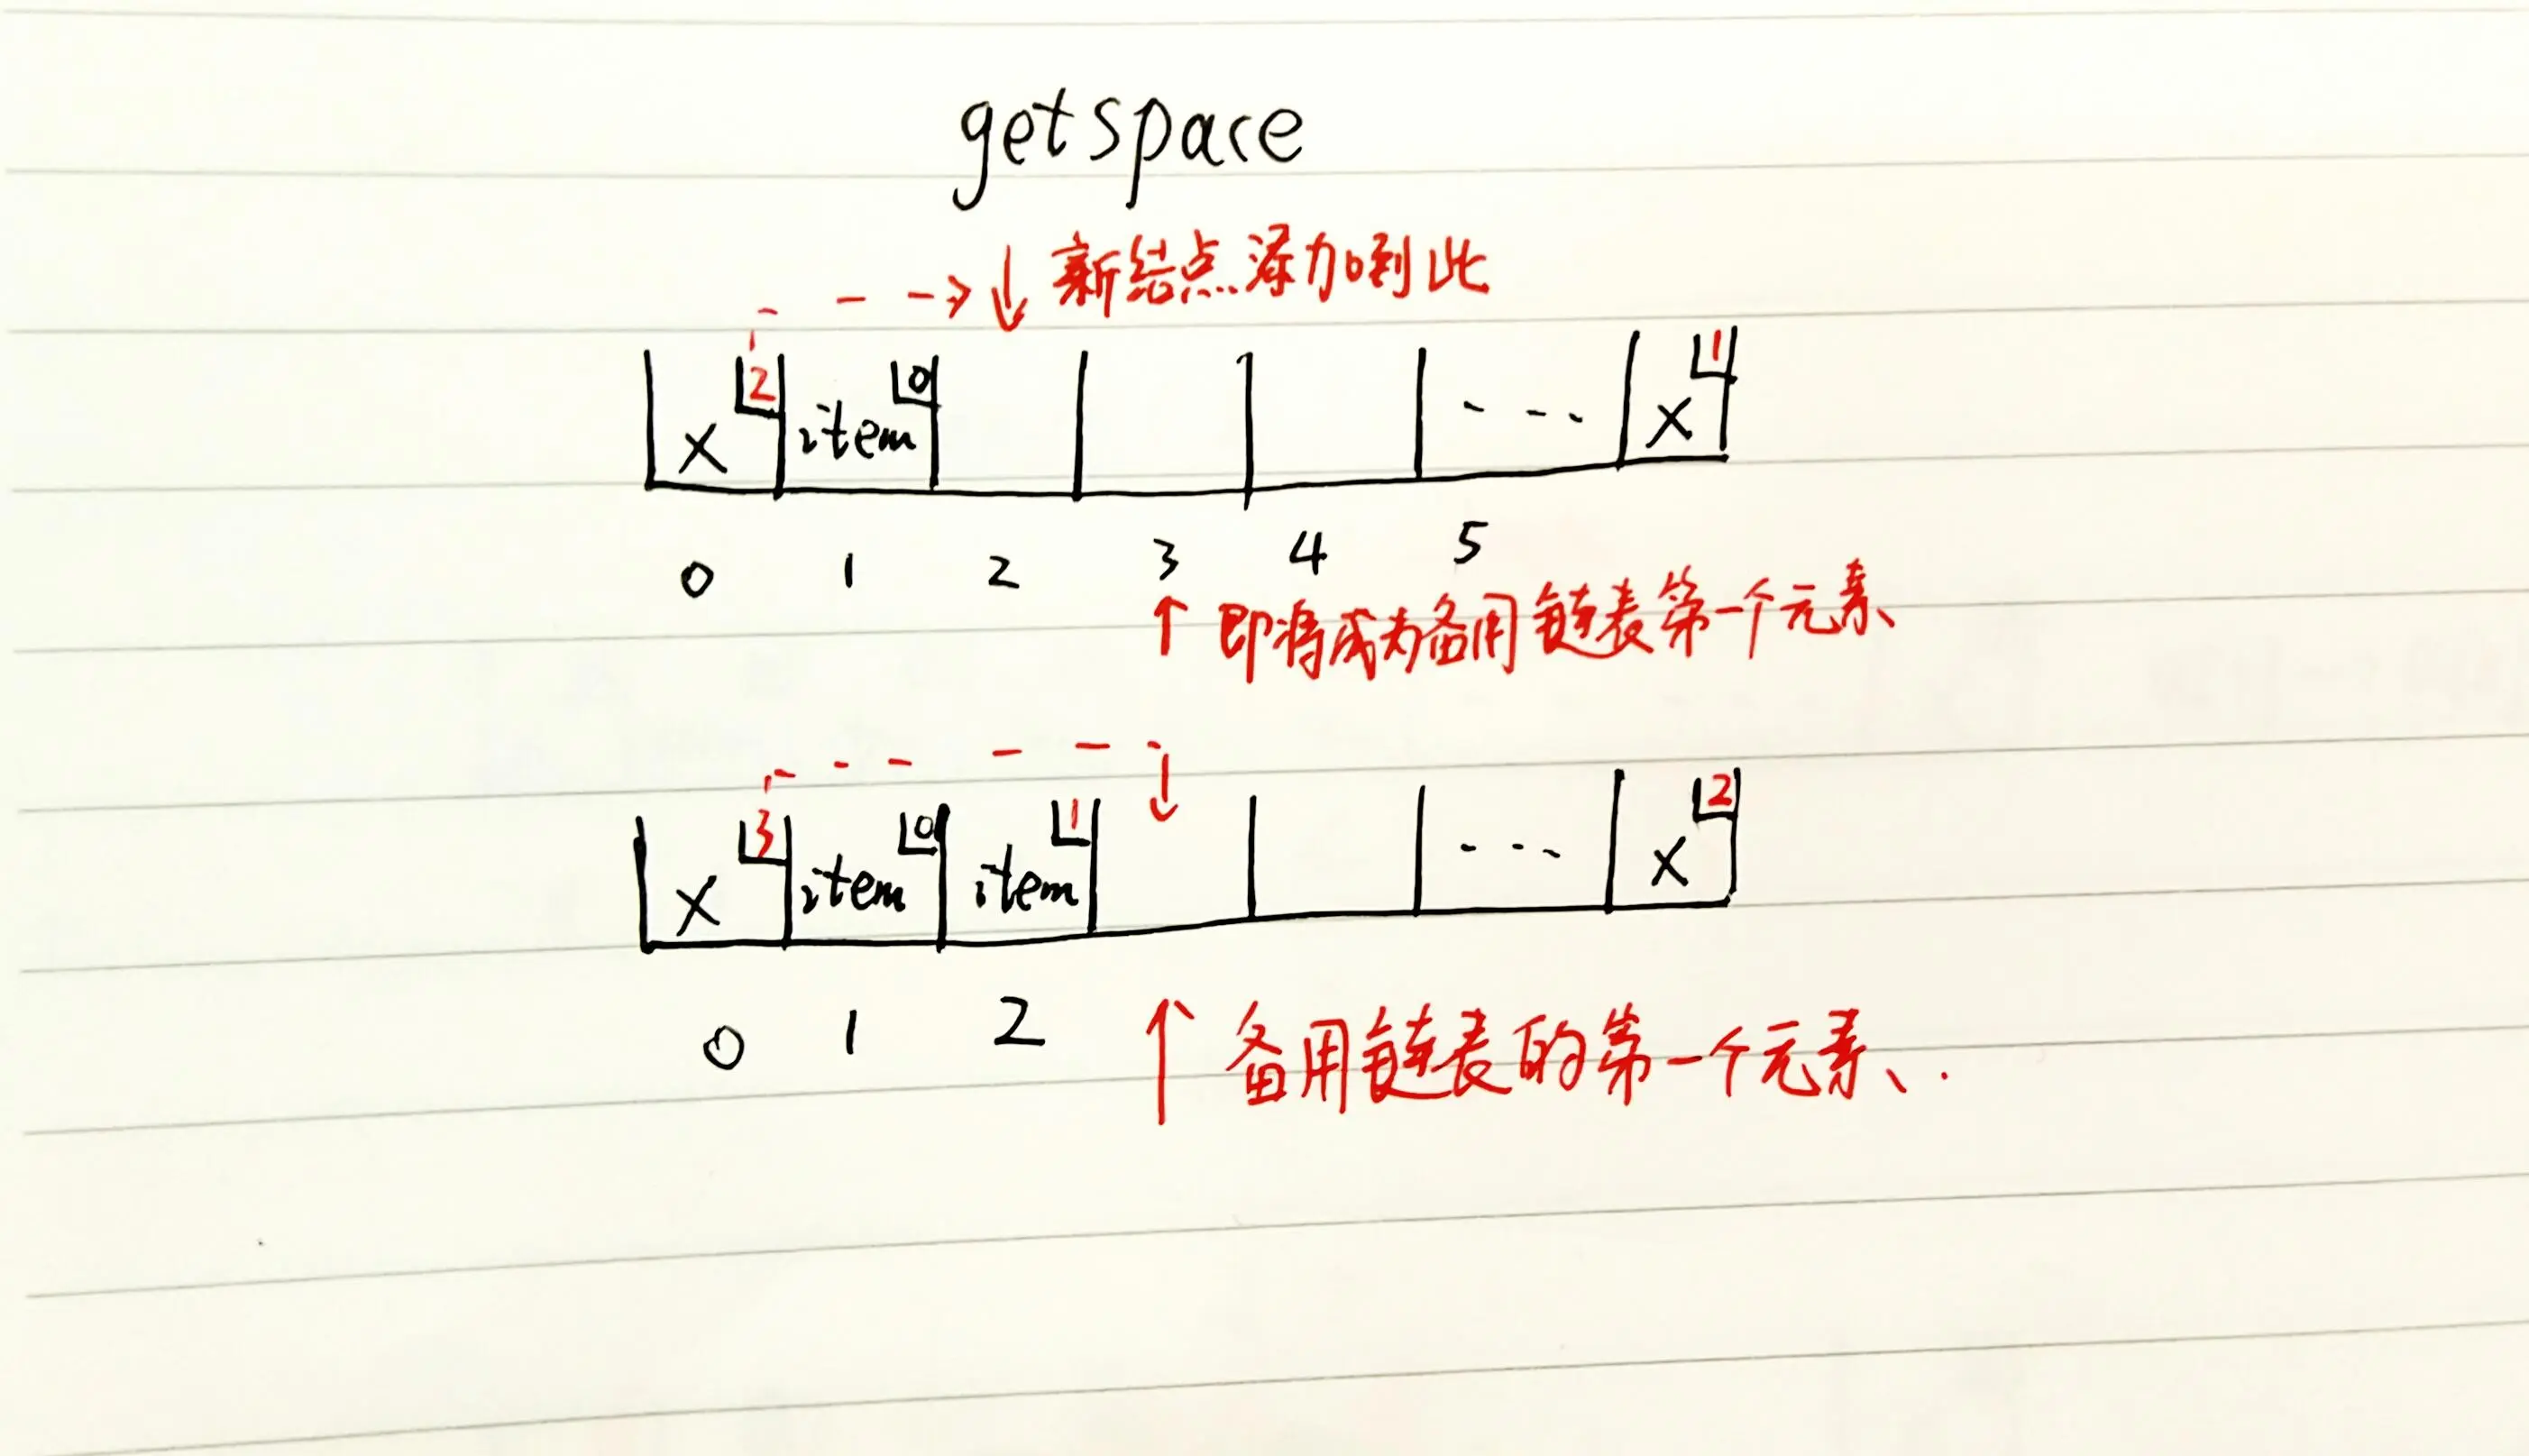 getspace
新结点添加到此
2 0 1
X item - - - X
0 1 2 3 4 5
即将成为备用链表第一个元素
3 0 1 2
X item item - - - X
0 1 2
备用链表的第一个元素.